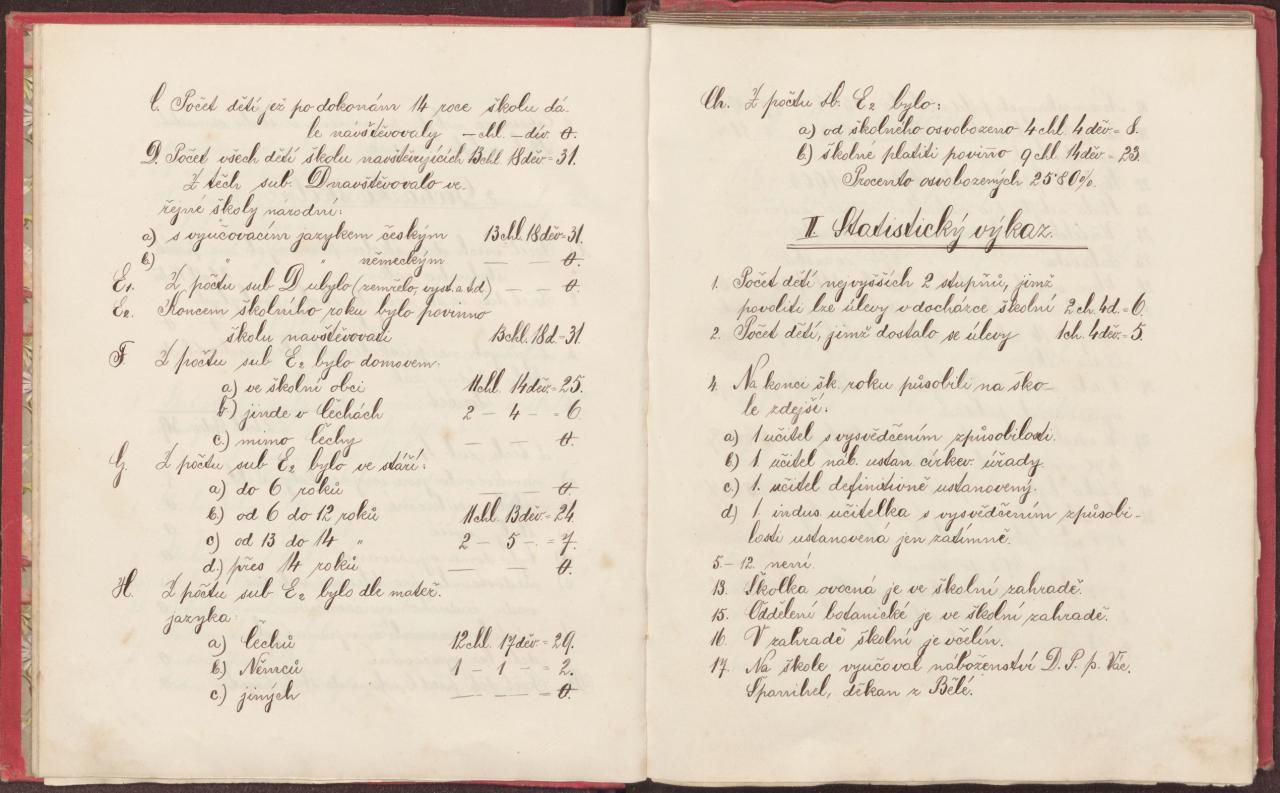 C. Počet dětí jež po dokonám 14 roce školu dá-
le navštěvovaly – chl. – děv. 0.
D. Počet všech dětí školu navštěvujících 13chl 18děv = 31.
Z těch sub. D navštěvovalo ve-
řejné školy národní:
a) s vyučovacím jazykem českým 13chl. 18děv = 31.
b) " " německým — — 0.
E1. Z počtu sub D ubylo (zemřelo, vyst. a.t.d) — — 0.
E2. Koncem školního roku bylo povinno
školu navštěvovati 13chl. 18d. = 31.
F Z počtu sub E2 bylo domovem:
a) ve školní obci 11chl. 14děv. = 25.
b) jinde v Čechách 2 – 4 – = 6
c.) mimo Čechy — — 0.
G. Z počtu sub E2 bylo ve stáří:
a) do 6 roků — — 0.
b.) od 6 do 12 roků 11chl. 13děv. = 24.
c) od 13 do 14 " 2 – 5 – = 7.
d.) přes 14 roků — — = 0.
H. Z počtu sub E2 bylo dle mateř.
jazyka:
a) Čechů 12chl. 17děv. = 29.
b.) Němců 1 – 1 – = 2.
c.) jiných — — — = 0.
Ch. Z počtu sb. E2 bylo:
a) od školného osvobozeno 4 chl. 4 děv. = 8.
b.) školné platiti povinno 9 chl. 14děv. = 23.
Procento osvobozených 25·80%.
II. Statistický výkaz.
1. Počet dětí nejvyšších 2 stupňů, jimž
povoliti lze úlevy v docházce školní 2 ch. 4d. = 6.
2. Počet dětí, jimž dostalo se úlevy 1ch. 4děv. = 5.
4. Na konci šk. roku působili na ško-
le zdejší:
a) 1 učitel s vysvědčením způsobilosti.
b) 1. učitel náb. ustan. církev. úřady.
c) 1. učitel definitivně ustanovený.
d) 1. indus. učitelka s vysvědčením způsobi-
losti ustanovená jen zatímně.
5. – 12. není.
13. Školka ovocná je ve školní zahradě.
15. Oddělení botanické je ve školní zahradě.
16. V zahradě školní je včelín.
17. Na škole vyučoval náboženství D. P. p. Vác.
Španihel, děkan z Bělé.